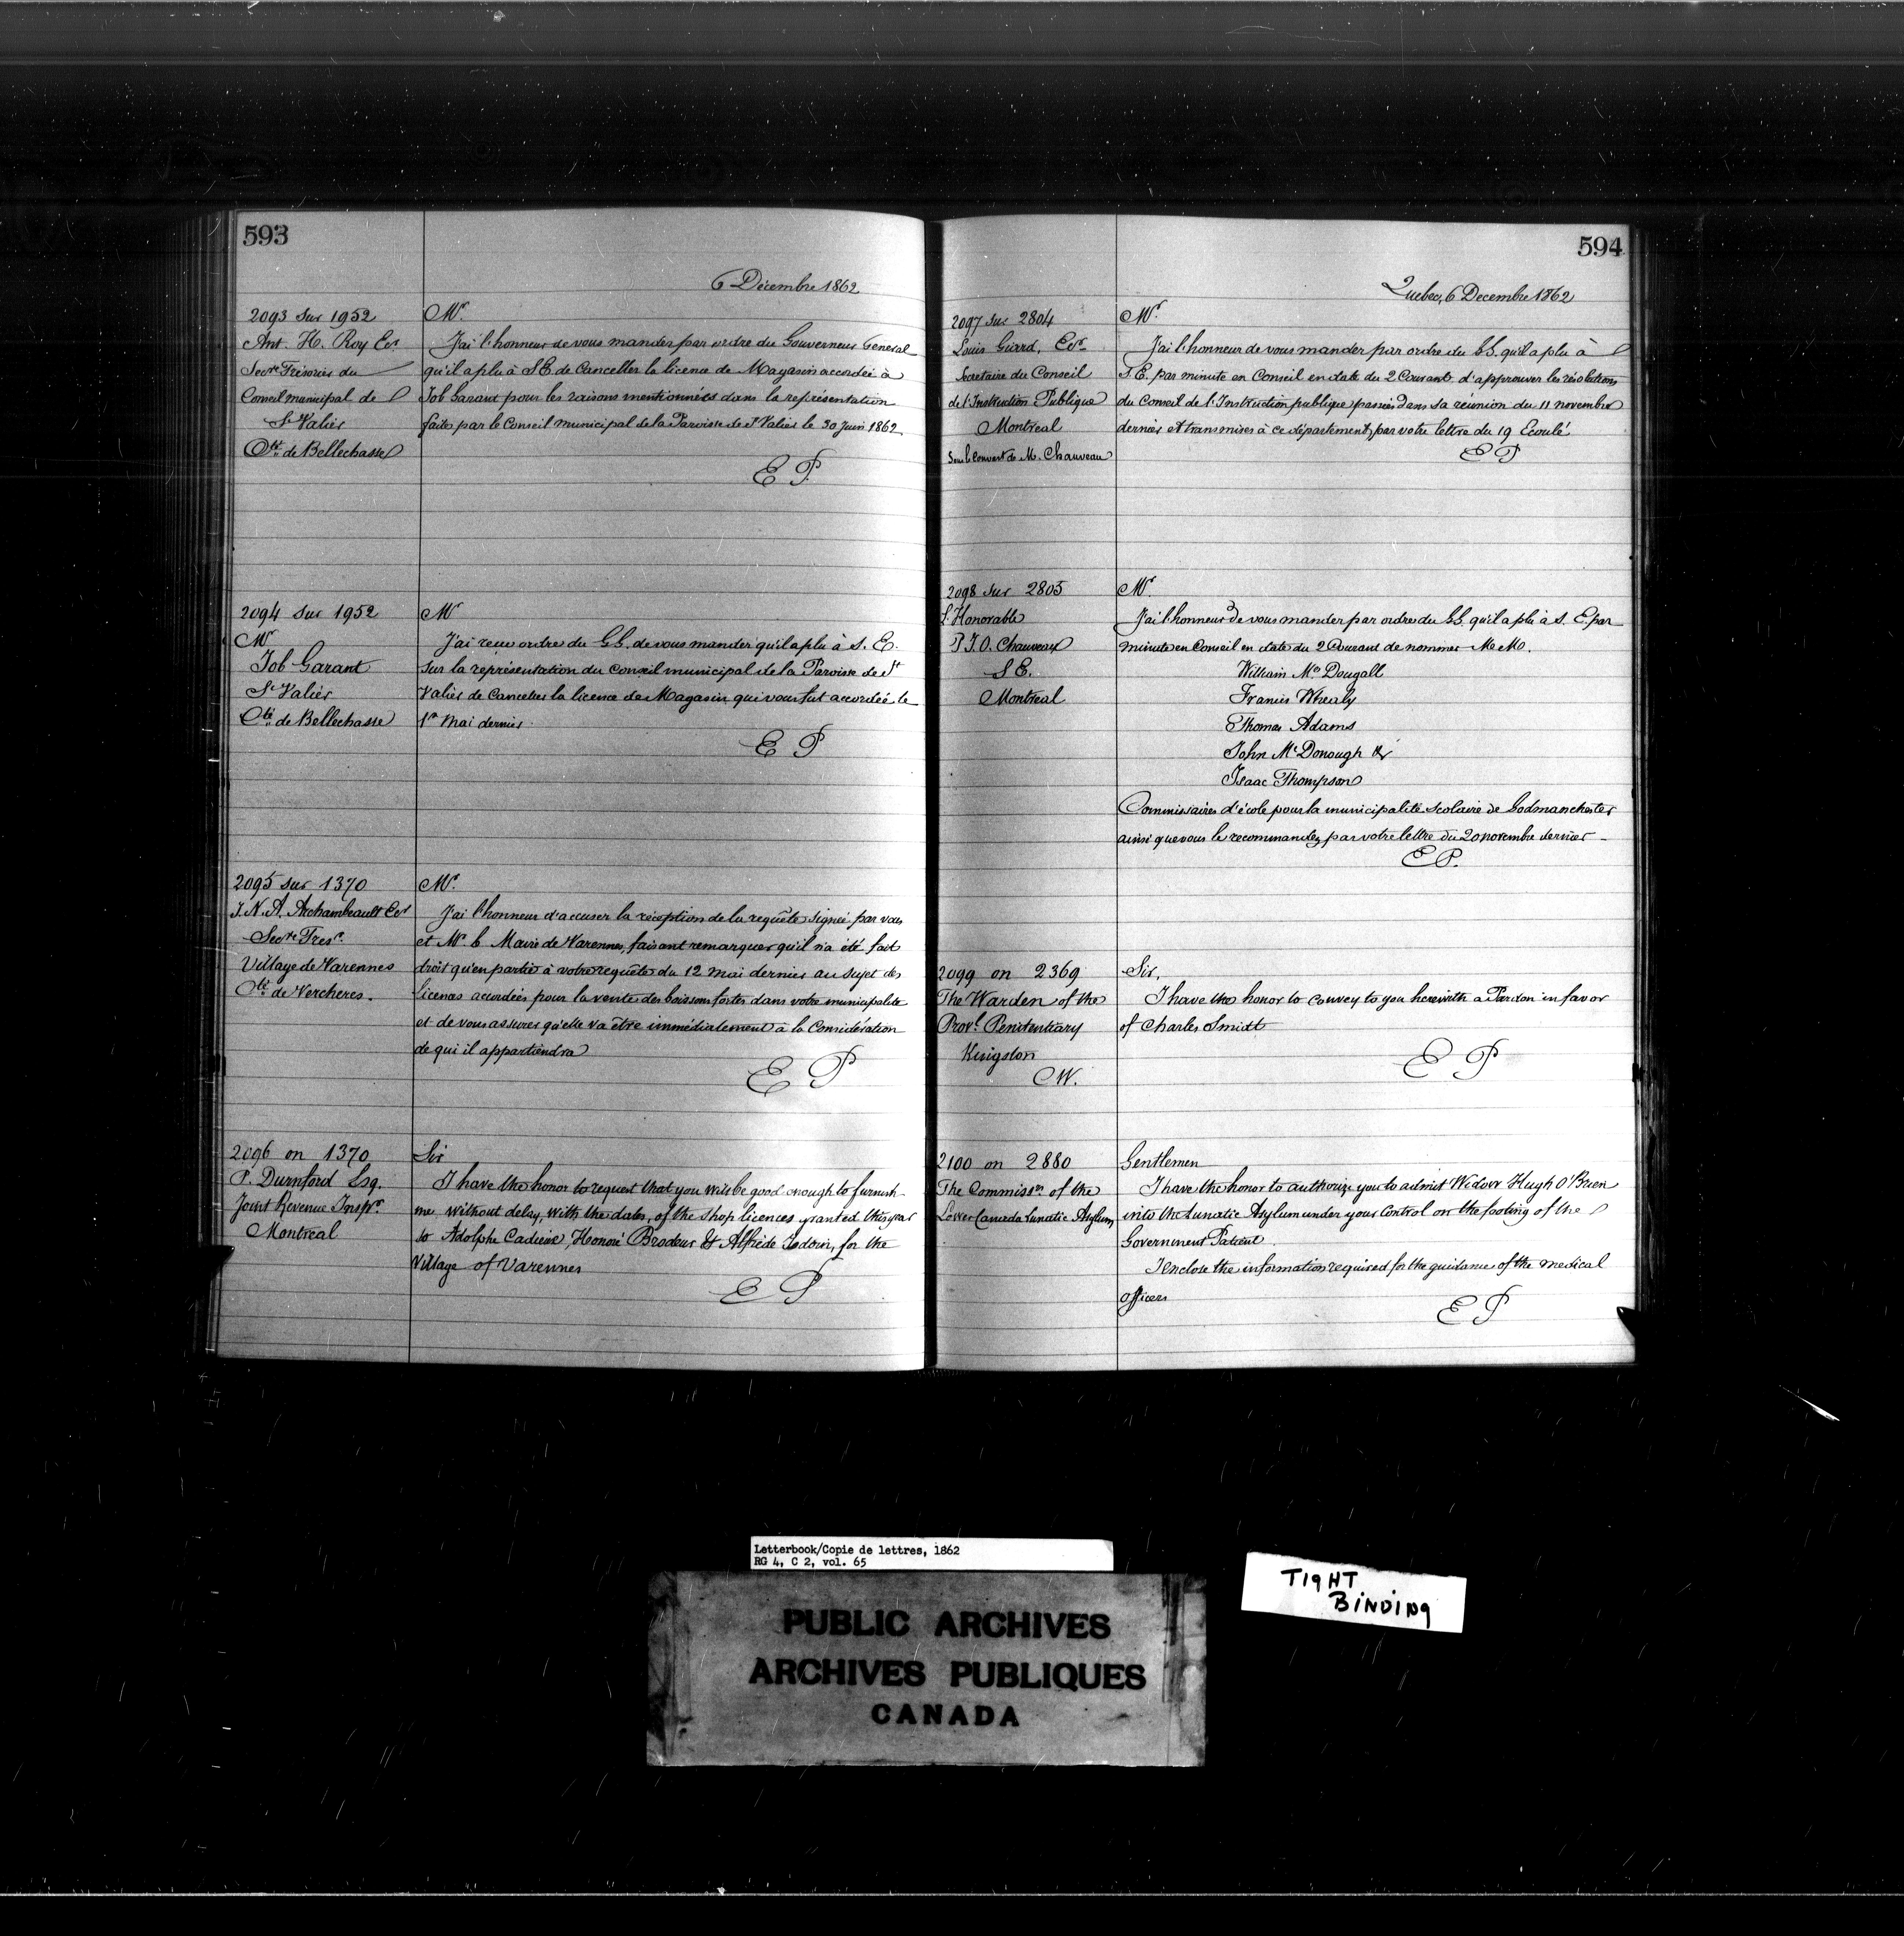 593
6 Décembre 1862
2093 sur 1952
Ant. H. Roy Ecr
Secrte Trésorier du
Conseil municipal de
St Valier
Cté de Bellechasse
Mr.
J'ai l'honneur de vous mander par ordre du Gouverneur General
qu'il a plu à S.E. de Canceller la licence de Magasin accordée à
Job Garant pour les raisons mentionnées dans la représentation
faite par le Conseil municipal de la Paroisse de St Valier le 30 Juin 1862
E P.
2094 sur 1952
Mr
Job Garant
St Valier
Cté de Bellechasse
Mr
J'ai reçu ordre du G.G. de vous mander qu'il a plu à S. E.
sur la représentation du Conseil municipal de la Paroisse de St
Valier de Canceller la licence de Magasin qui vous fut accordée le
1er Mai dernier
E P
2095 sur 1370
J. N. A. Archambeault Ecr
Secrte Tresr.
Village de Varennes
Cté de Vercheres.
Mr.
J'ai l'honneur d'accuser la réception de la requête signée par vous
et Mr. le Maire de Varennes, faisant remarquer qu'il n'a été fait
droit qu'en partie à votre requête du 12 mai dernier au sujet des
licences accordées pour la vente des boissons fortes dans votre municipalite
et de vous assurer qu'elle va être immédiatement à la Considération
de qui il appartiendra
E P
2096 on 1370
P. Durnford Esq.
Joint Revenue Inspr.
Montreal
Sir
I have the honor to request that you will be good enough to furnish
me without delay, with the dates, of the shop licences granted this year
to Adolphe Cadieux, Honoré Brodeur & Alfrède Jodoin, for the
Village of Varennes
E P
594
Quebec, 6 Decembre 1862
2097 sur 2804
Louis Giard, Ecr.
Secretaire du Conseil
de l'Instruction Publique
Montreal
Sous le couvert de M. Chauveau
Mr.
J'ai l'honneur de vous mander par ordre du G.G. qu'il a plu à
S. E. par minute en Conseil en date du 2 Courant d'approuver les résolutions
du Conseil de l'Instruction publique passées dans sa réunion du 11 november
dernier et transmises à ce département, par votre lettre du 19 Ecoulé
E P
2098 sur 2805
L'Honorable
P. J. O. Chauveau
S E.
Montreal
Mr.
J'ai l'honneur de vous mander par ordre du G.G. qu'il a plu à S. E. par
minute en Conseil en date du 2 Courant de nommer M.M.
William Mc Dougall
Francis Whealy
Thomas Adams
John McDonough &
Isaac Thompson
Commissaires d'école pour la municipalité Scolaire de Godmanchester
ainsi que vous le recommandez par votre lettre du 20 novembre dernier -
E P.
2099 on 2369
The Warden of the
Provl. Penitentiary
Kingston
C W.
Sir,
I have the honor to convey to you herewith a Pardon in favor
of Charles Smidt
E P
2100 on 2880
The Commissrs. of the
Lower Canada Lunatic Asylum
Gentlemen
I have the honor to authorize you to admit Widow Hugh O'Brien
into the Lunatic Asylum under your Control on the footing of the
Government Patient.
I enclose the information required for the guidance of the medical
officers
E P
Letterbook/Copie de lettres, 1862
RG 4, C 2, vol. 65
TIGHT
BINDING
PUBLIC ARCHIVES
ARCHIVES PUBLIQUES
CANADA